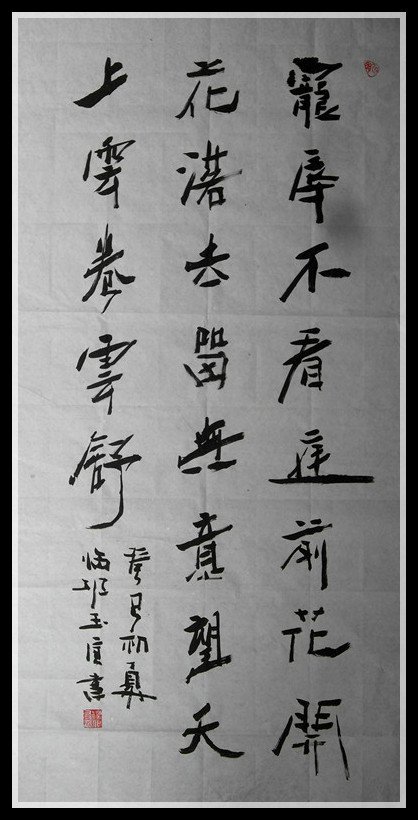 寵辱不看庭前花開
花落去留無意望天
上雲卷雲舒
癸巳初夏
临邛玉書